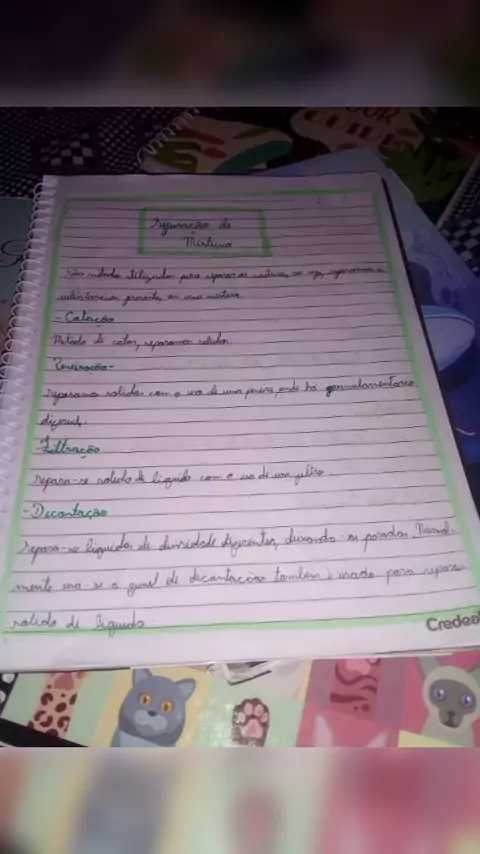 Separação de
Mistura
São método utilizados para separar as mistura, ou seja, separarmos a
substâncias presente, em uma mistura.
- Catação
Método de catar, separamos sólidos.
Peneiração -
Separamos sólidos com o uso de uma peneira, onde há
diferent.
Filtração
Separa-se sólido de líquido com o uso de um filtro.
- Decantação
Separa-se líquidos de densidade diferentes, deixando-os parados. Normal-
mente usa-se o funil de decantação também é usado para separar
sólido de líquido.
Credeal